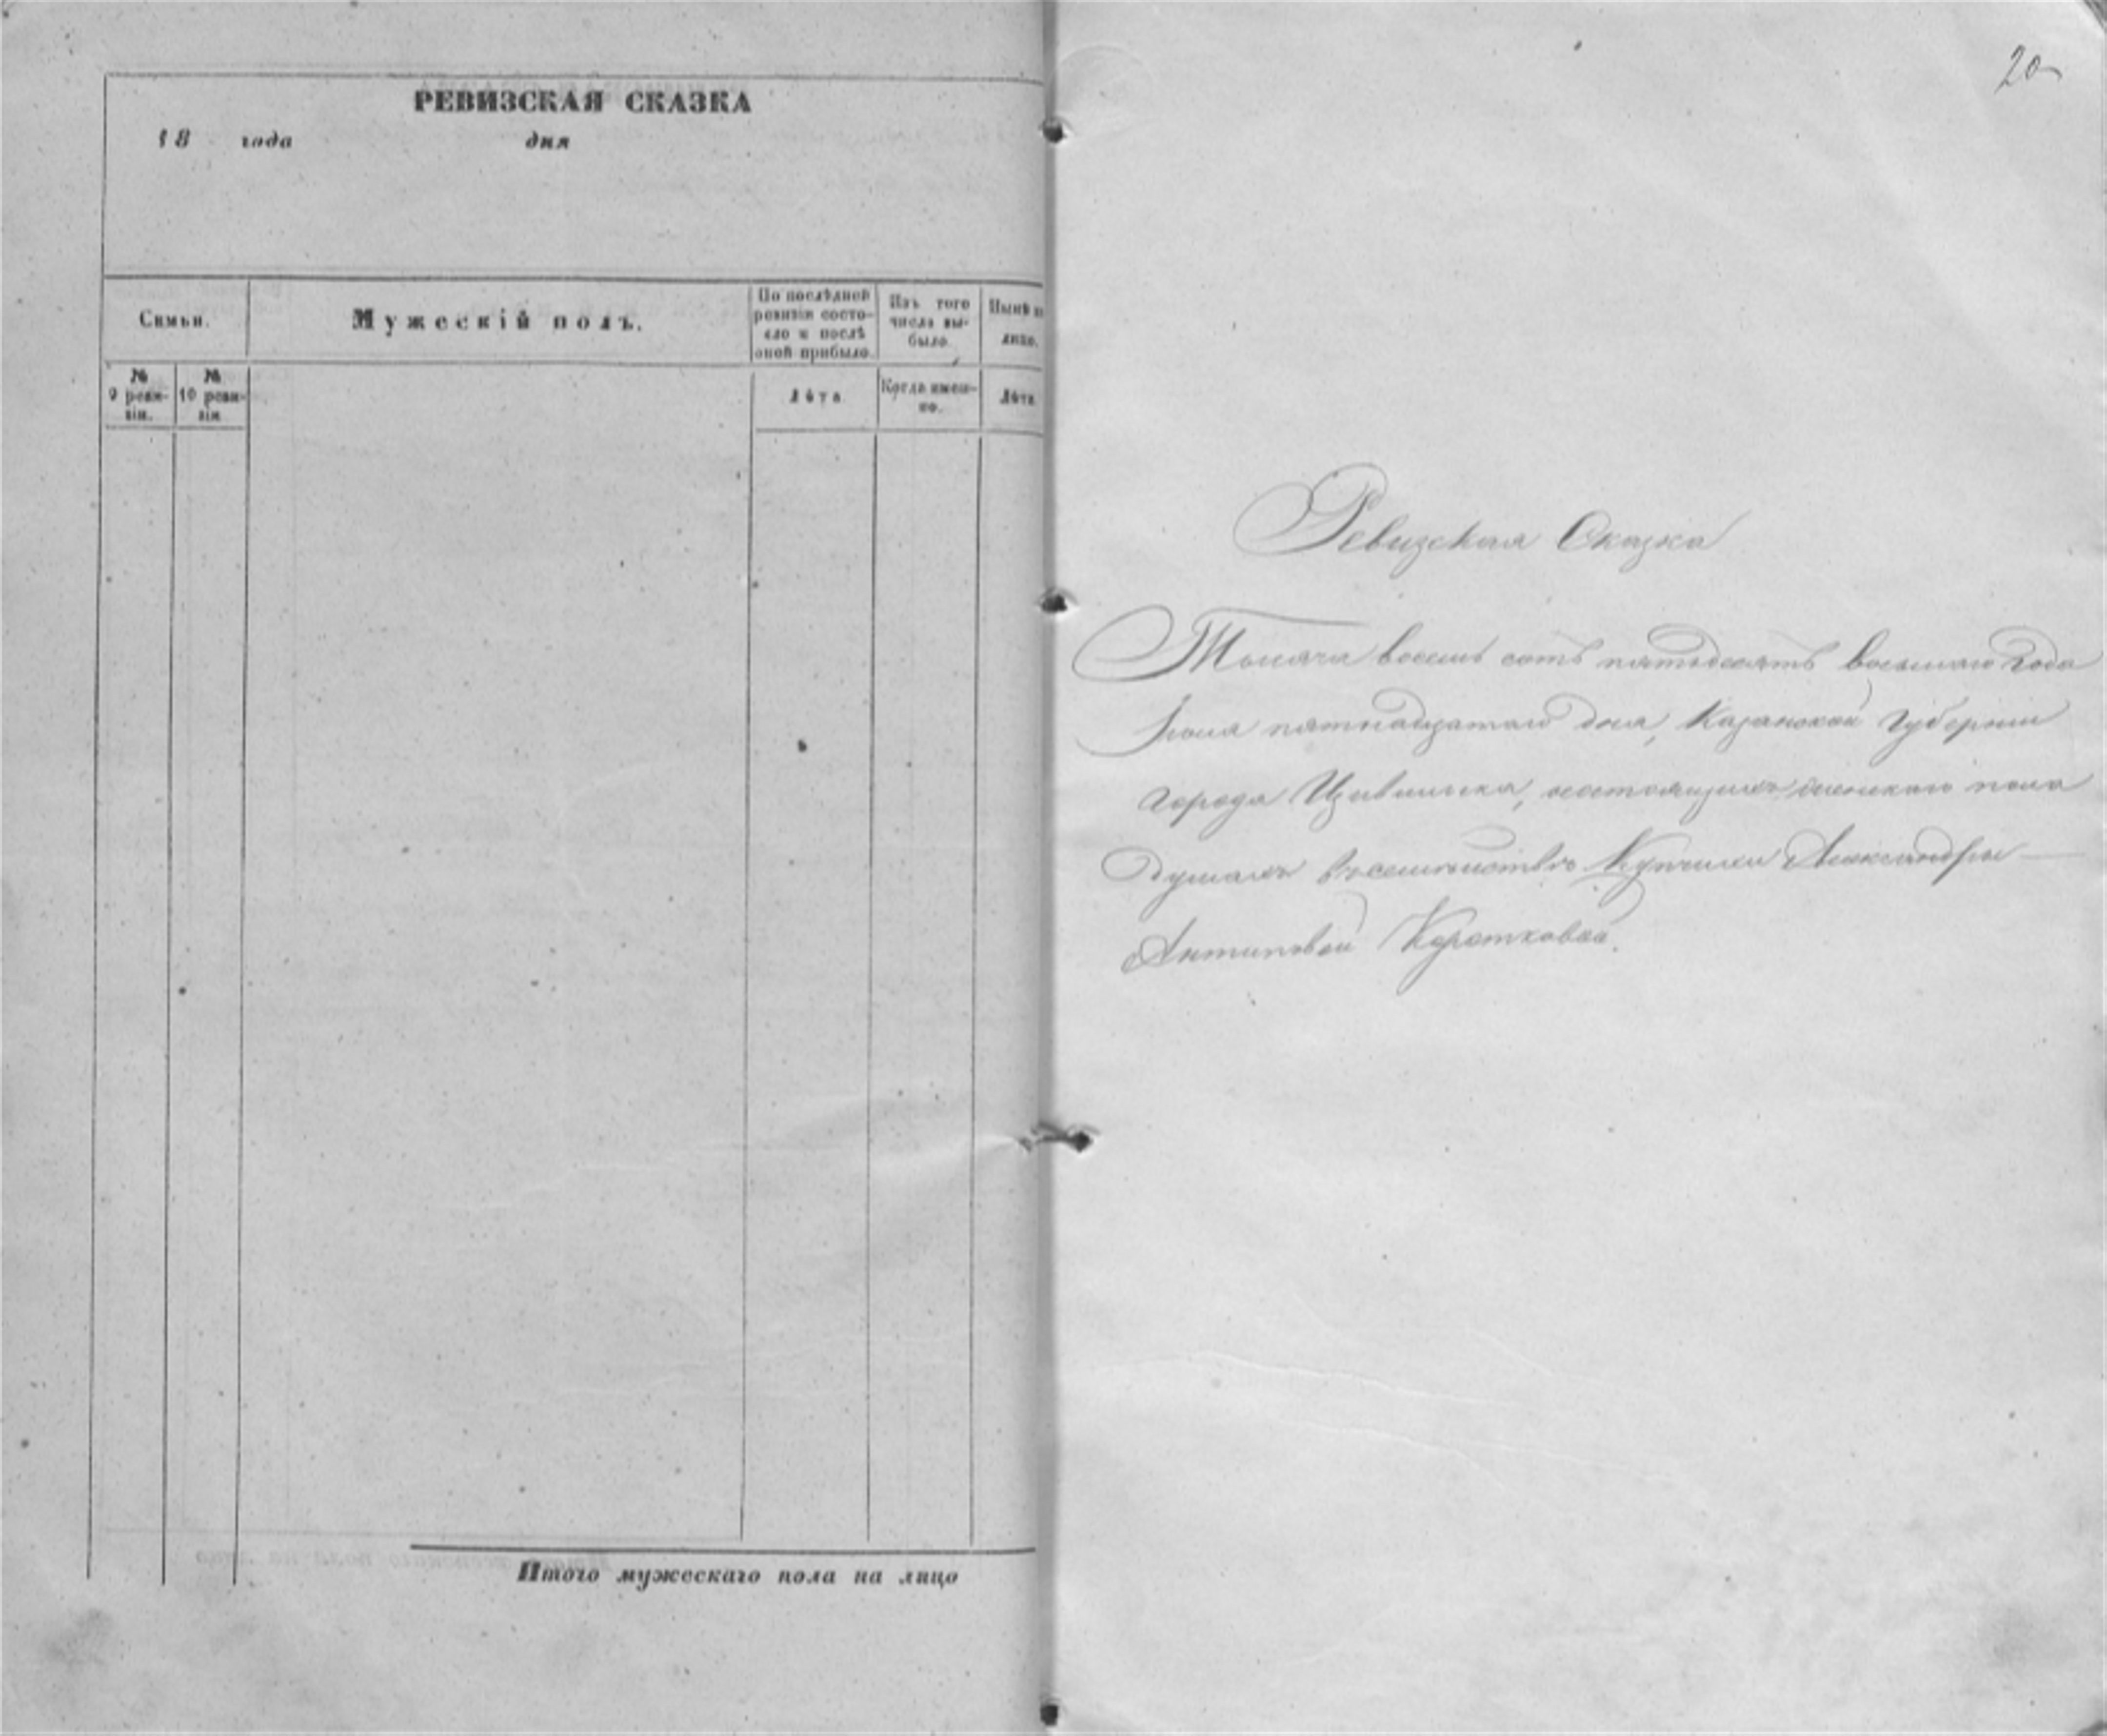 РЕВИЗСКАЯ СКАЗКА
18 года дня
Семьи.
Мужескій полъ.
По послѣдней
ревизіи состо-
яло и послѣ
оной прибыло.
Изъ того
числа вы-
было.
Нынѣ на
лицо.
№
9 реви-
зіи.
№
10 реви-
зіи
Лѣта
Когда имен-
но.
Лѣта
Итого мужескаго пола на лицо
20
Ревизская Сказка
Тысяча восемь сотъ пятьдесятъ восьмаго Года
Іюня пятнадцатаго дня, Казанской Губерніи
города Цивильска, о состоящихъ женскаго пола
душахъ въ семействѣ Купчихи Александры
Антиповой Коротковой.